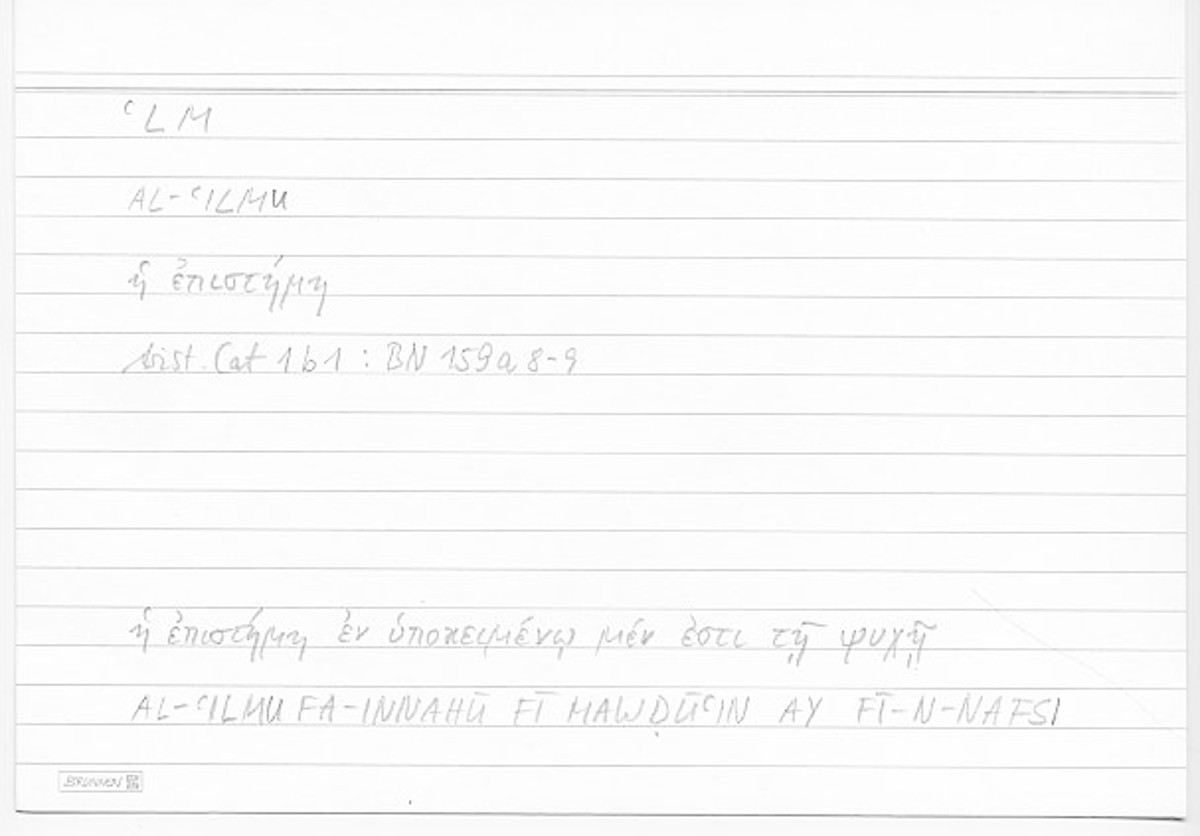 ʿLM
AL-ʿILMU
ἡ ἐπιστήμη
Arist. Cat 1b1 : BN 159a 8-9
ἡ ἐπιστήμη ἐν ὑποκειμένῳ μέν ἐστι τῇ ψυχῇ
AL-ʿILMU FA-INNAHŪ FĪ MAWḌŪʿIN AY FĪ-N-NAFSI
BRUNNEN